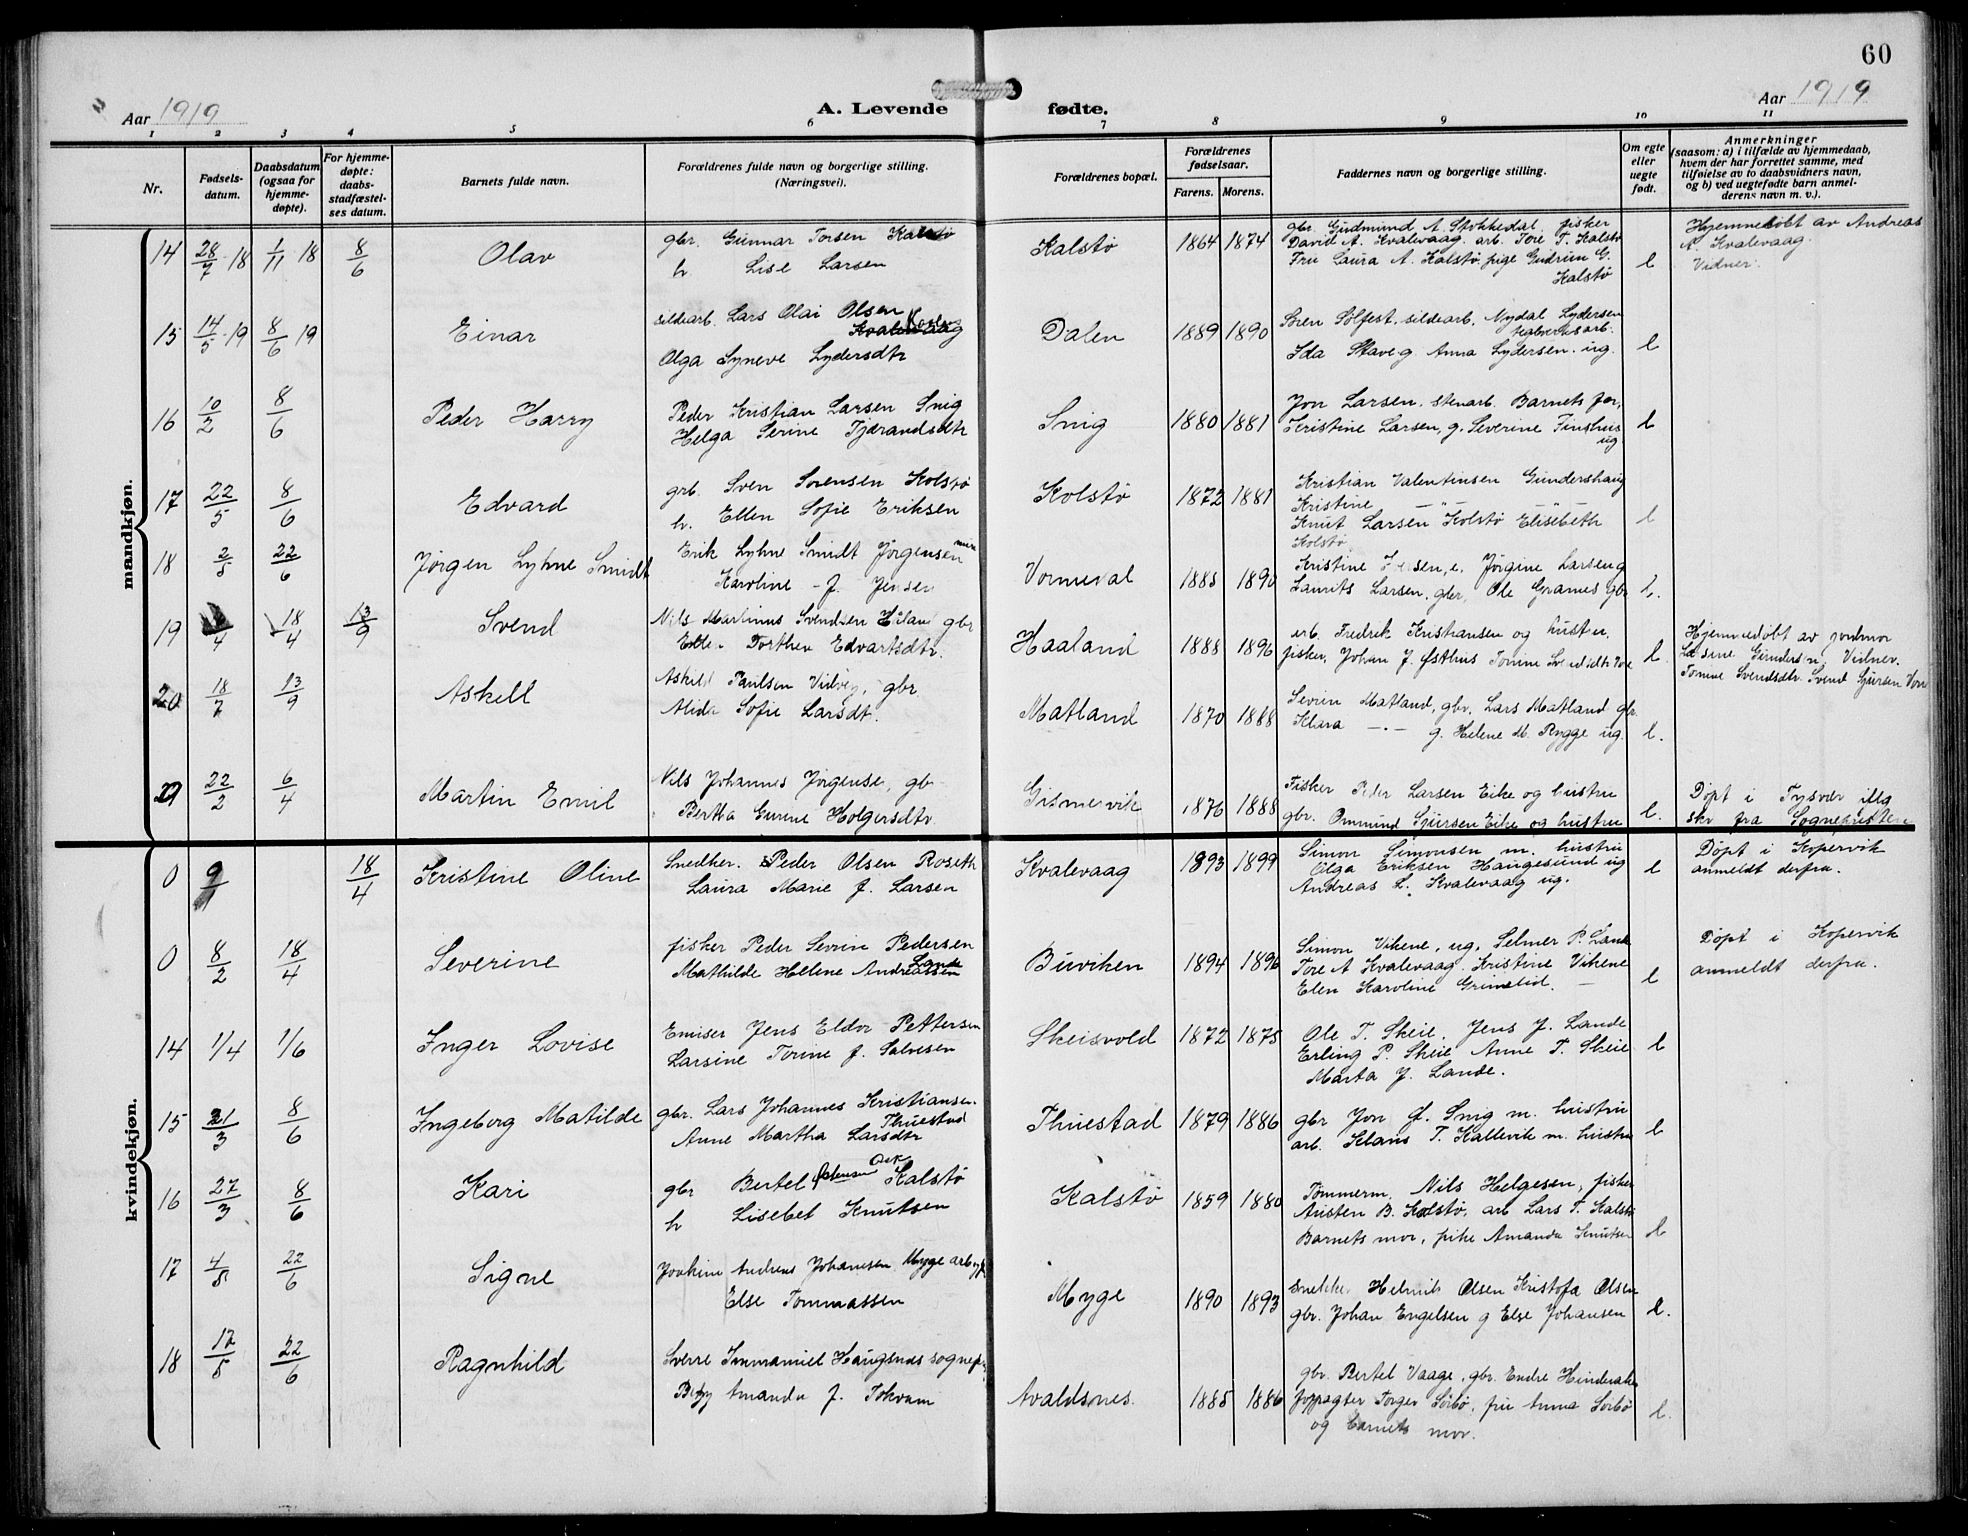 60
Aar 1919 A. Levende fødte. Aar 1919
1 2 3 4 5 6 7 8 9 10 11
Nr.
Fødsels-
datum.
Daabsdatum
(ogsaa for
hjemme-
døpte).
For hjemme-
døpte:
daabs-
stadfæstel-
ses datum.
Barnets fulde navn.
Forældrenes fulde navn og borgerlige stilling.
(Næringsvei).
Forældrenes bopæl.
Forældrenes
fødselsaar.
Farens. Morens.
Faddernes navn og borgerlige stilling.
Om egte
eller
uegte
født.
Anmerkninger
(saasom: a) i tilfælde av hjemmedaab,
hvem der har forrettet samme, med
tilføielse av to daabsvidners navn,
og b) ved uegtefødte barn anmel-
derens navn m. v.).
mandkjøn.
14 28/7 18 1/11 18 8/6 Olav
gbr. Gunnar Torsen Kalstø
h. Lise Larsen
Kalstø 1864 1874
gbr. Gudmund A. Stokkedal, fisker
David A. Kvalevaag, arb. Tore T. Kalstø
Fru Laura A. Kalstø, pige Gudrun G.
Kalstø
l
Hjemmedøbt av Andreas
A. Kvalevaag.
Vidner:
15 14/5 19 8/6 19 Einar
sildearb. Lars Olai Olsen
Kvalevaag
Olga Syneve Lydersdtr
Dalen 1889 1890
Søren Sølfest, sildearb. Nydal Lydersen
Ida Stave g. Anna Lydersen. ug.
l
16 10/2 8/6 Peder Harry
Peder Kristian Larsen Snig
Helga Serine Tjærandsdtr
Snig 1880 1881
Jon Larsen, stenarb. Barnets far,
Kristine Larsen, g. Severine Finshus
ug
l
17 22/5 8/6 Edvard
grb. Sven Sørensen Kolstø
h. Ellen Sofie Eriksen
Kolstø 1872 1881
Kristian Valentinsen Gundershaug
Kristine — " — — " —
Knut Larsen Kolstø Elisebeth
Kolstø
l
18 2/5 22/6 Jørgen Lyhne Smidt
Erik Lyhne Smidt Jørgensen
Karoline f. Jensen
Vormedal 1885 1890
Kristine Larsen g
Laurits Larsen, gbr, Ole Grannes gbr
l.
19 /4 18/4 13/9 Svend
Nils Martinus Svendsen Håland gbr
Ellen Dorthea Edvartsdtr.
Haaland 1888 1896
arb. Fredrik Kristiansen og hustru,
fisker, Johan J. Østhus Tomine Svendsdtr
l.
Hjemmedøbt av jordmor
Gundersen, Vidner.
Tomine Svendsdtr. Svend Sjursen
20 18/7 13/9 Askell
Askild Paulsen, gbr.
Alida Sofie Larsdt.
Matland 1870 1888
Sevrin Matland, gbr. Lars Matland gbr.
Klara — " — g. Helene M. Rygge ug.
l.
22/2 6/4 Martin Emil
Nils Johannes Jørgensen, gbr
Bertha Gurine Holgersdtr.
1876 1888
Fisker Peder Larsen Eike og hustru
gbr. Ommund Sjursen Eike og hustru
l.
Døpt i Tysvær iflg
skr fra Sognepresten
kvindekjøn.
0 9/1 18/4 Kristine Oline
Snedker. Peder Olsen Roseth
Laura Marie f. Larsen
Kvalevaag 1893 1899
Simon Simonsen m. hustru
Olga Eriksen Haugesund ug
Andreas L. Kvalevaag ug.
l
Døpt i Kopervik
anmeldt derfra.
0 8/2 18/4 Severine
fisker Peder Sevrin Pedersen
Lande
Mathilde Helene Andreassen
Buviken 1894 1896
Simon Vikene, ug, Selmer P. Lande
Tore A Kvalevaag. Kristine Vikene
Elen Karoline Grimelid.
l
Døpt i Kopervik
anmeldt derfra.
14 1/4 1/6 Inger Lovise
Emiser Jens Eldor Pettersen
Larsine Torine f. Salvesen
Skeisvold 1872 1875
Ole T. Skeie, Jens J. Lande
Erling P. Skeie Anne T. Skeie
Marta J. Lande.
l
15 21/3 8/6 Ingeborg Matilde
gbr. Lars Johannes Kristiansen
Thuestad
Anne Martha Larsdtr
Thuestad 1879 1886
gbr Jon J. Snig m. hustru
arb. Klaus T. Kallevik m. hustru
l
16 27/3 8/6 Kari
gbr Bertel Kalstø
h Lisebet Knutsen
Kalstø 1859 1880
Tømmerm. Nils Helgesen, fisker
Aristen B. Kalstø, arb Lars T. Kalstø
Barnets mor, pike Amanda Knutsen
l
17 4/5 22/6 Signe
Joakim Andreas Johansen Myge
Else Tommassen
Myge 1890 1893
snekker Helmik Olsen Kristofa Olsen
gbr. Johan Engelsen g Else Johansen
l.
18 17/5 22/6 Ragnhild
Sverre Immanuel Haugsnes
Betzy Amanda f. Tokvam
Avaldsnes. 1885 1886
gbr. Bertel Vaage, gbr. Endre Hinderaker
Torger Sørbø, fru Anna Sørbø
og barnets mor.
l.